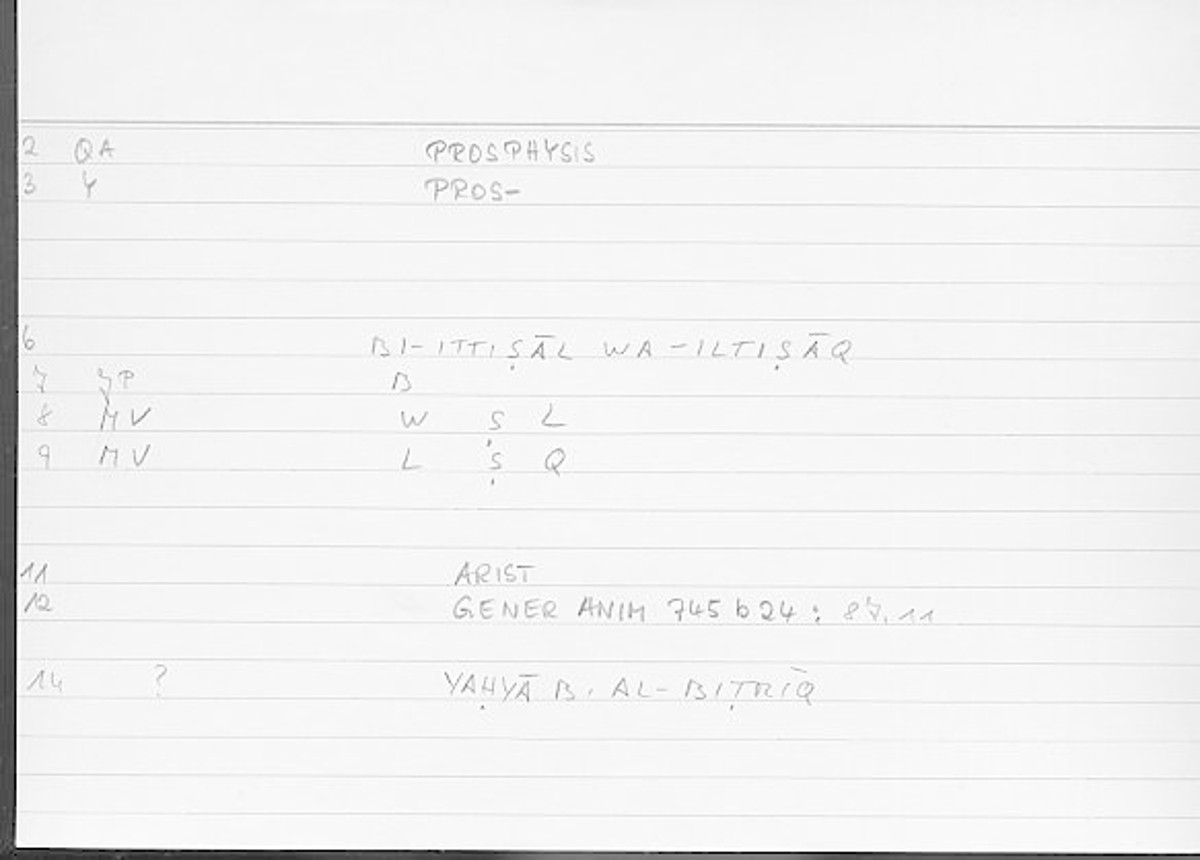 2 QA PROSPHYSIS
3 Y PROS-
6 BI-ITTIṢĀL WA-ILTIṢĀQ
7 JP B
8 MV W Ṣ L
9 MV L Ṣ Q
11 ARIST
12 GENER ANIM 745 b 24 : 87.11
14 ? YAḤYĀ B. AL-BIṬRĪQ